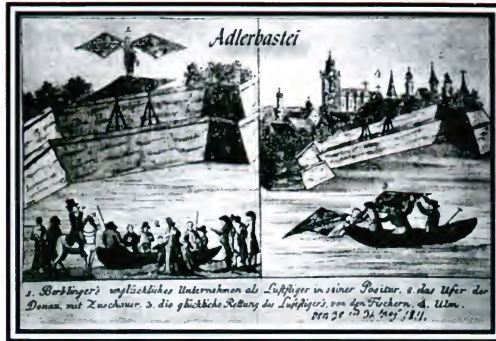 Adlerbastei
1. Berblinger's unglückliches Unternehmen als Luftfliger in seiner Positur. 2. das Ufer der
Donau, mit Zuschauer. 3. die glückliche Rettung des Luftfliger's, von den Fischern. 4. Ulm.
den 30